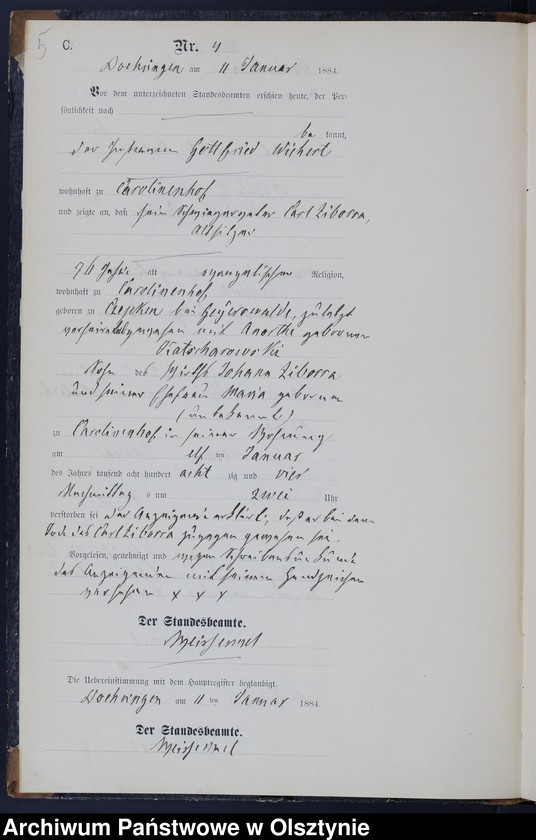 5
C.
Nr. 4
Doehringen am 11 Januar 1884.
Vor dem unterzeichneten Standesbeamten erschien heute, der Per-
sönlichkeit nach
be kannt,
der Instmann Gottfried Wichert
wohnhaft zu Carolinenhof
und zeigte an, daß sein Schwiegervater Carl Ziborra,
Altsitzer
76 Jahre alt evangelischer Religion,
wohnhaft zu Carolinenhof,
geboren zu bei Geyerswalde, zuletzt
verheirathet gewesen mit Anorthe geborenen
Sohn des Wirths Johann Ziborra
und seiner Ehefrau Maria geborenen
(unbekannt)
zu Carolinenhof in seiner Wohnung
am elf ten Januar
des Jahres tausend acht hundert acht zig und vier
Nachmittag s um zwei Uhr
verstorben sei der Anzeigende erklärte, daß er bei dem
Tode des Carl Ziborra zugegen gewesen sei.
Vorgelesen, genehmigt und wegen Schreibensunkunde
des Anzeigenden mit seinem Handzeichen
versehen x x x
Der Standesbeamte.
Weissermel
Die Uebereinstimmung mit dem Hauptregister beglaubigt.
Doehringen am 11 ten Januar 1884.
Der Standesbeamte.
Weissermel
Archiwum Państwowe w Olsztynie